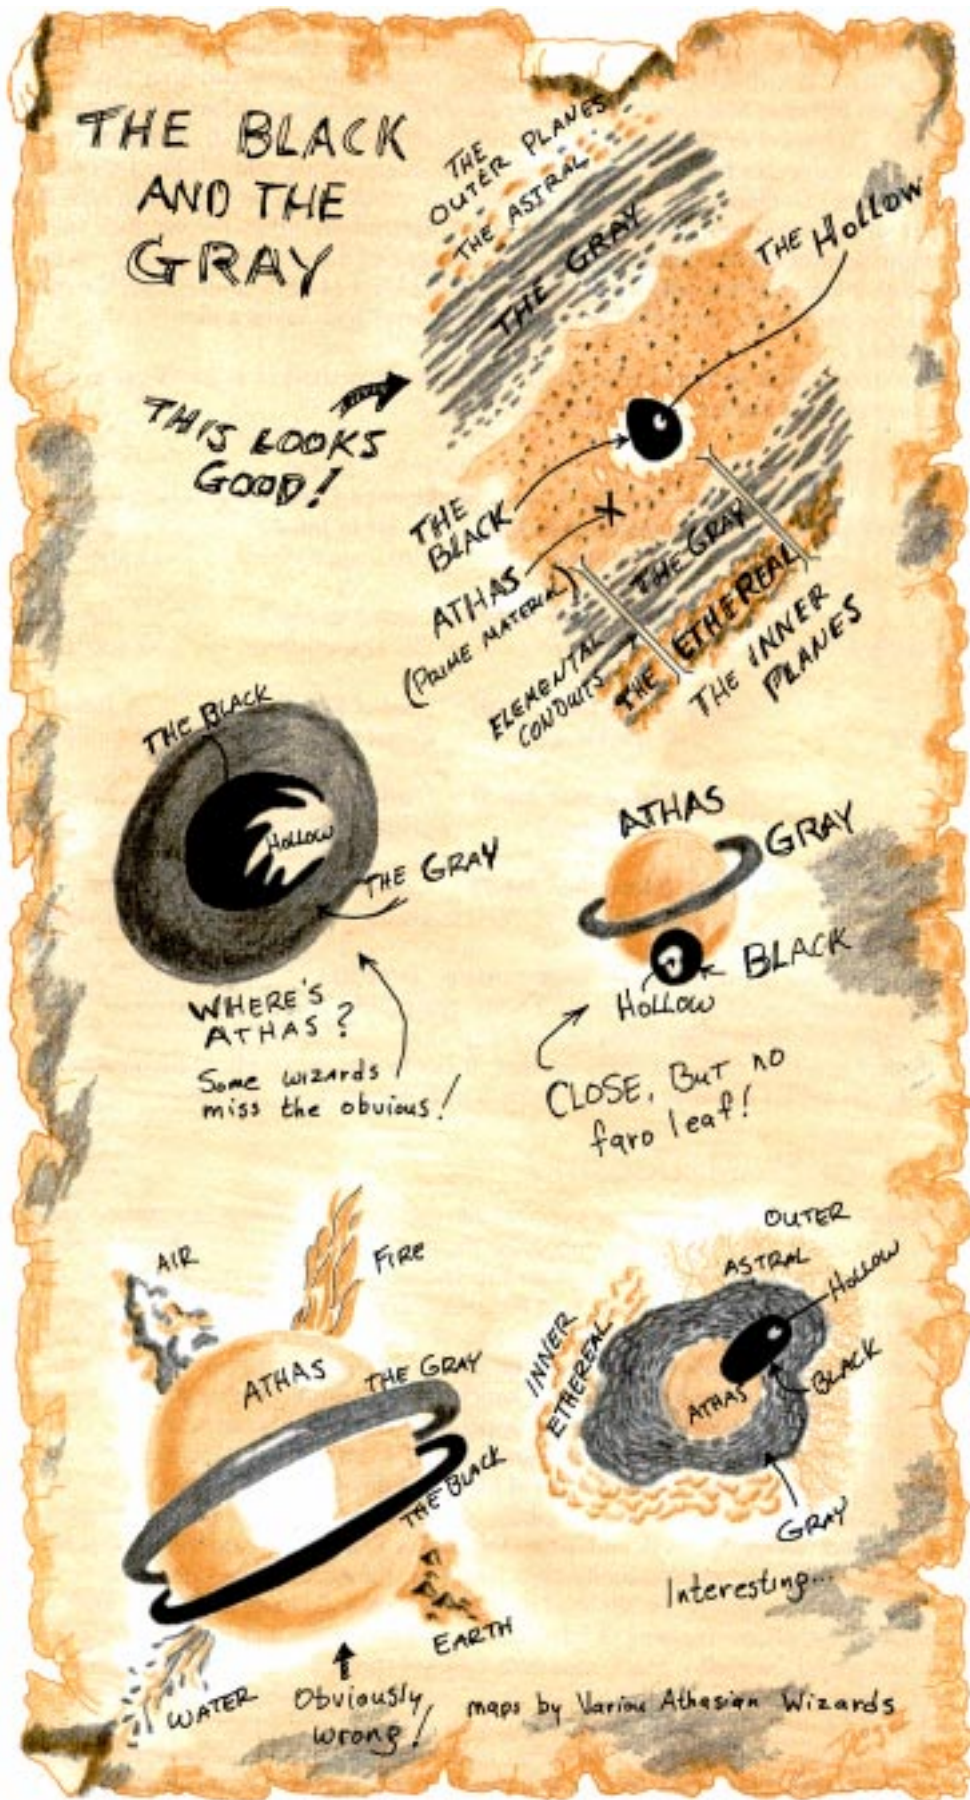 THE BLACK
AND THE
GRAY
THE
OUTER PLANES
THE ASTRAL
THE GRAY
THE HOLLOW
THIS LOOKS
GOOD!
THE
BLACK
ATHAS
(PRIME MATERIAL)
ELEMENTAL
CONDUITS
THE GRAY
THE ETHEREAL
THE INNER
PLANES
THE BLACK
HOLLOW
THE GRAY
WHERE'S
ATHAS?
Some wizards
miss the obvious!
ATHAS
GRAY
BLACK
HOLLOW
CLOSE, BUT no
faro leaf!
AIR
FIRE
ATHAS
THE GRAY
THE BLACK
EARTH
WATER
Obviously
wrong!
OUTER
ASTRAL
HOLLOW
INNER
ETHEREAL
ATHAS
BLACK
GRAY
Interesting...
maps by Variou Athasian Wizards